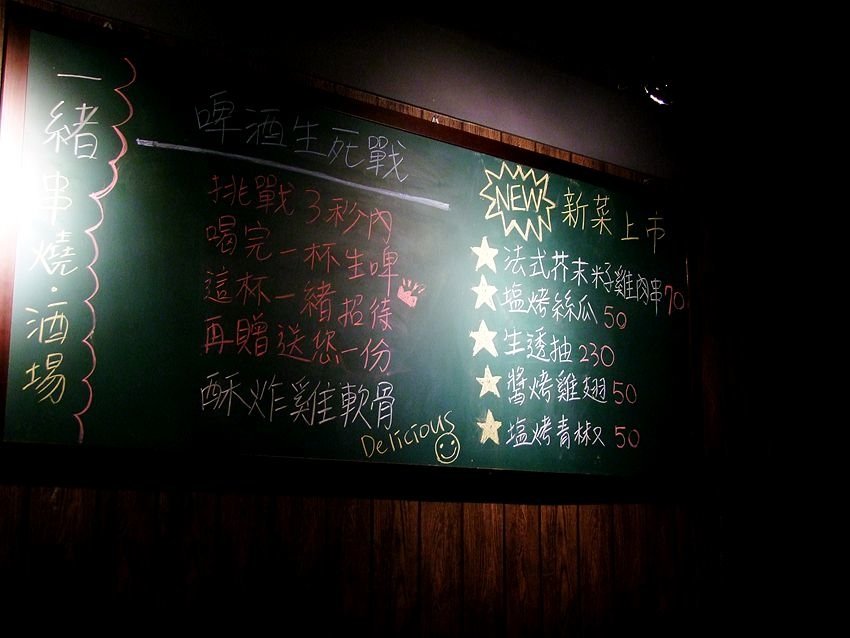 一緒串燒·酒場
啤酒生死戰
挑戰3秒內
喝完一杯生啤
這杯一緒招待
再贈送您一份
酥炸雞軟骨
Delicious
NEW 新菜上市
法式芥末籽雞肉串70
塩烤絲瓜50
生透抽230
醬烤雞翅50
塩烤青椒50